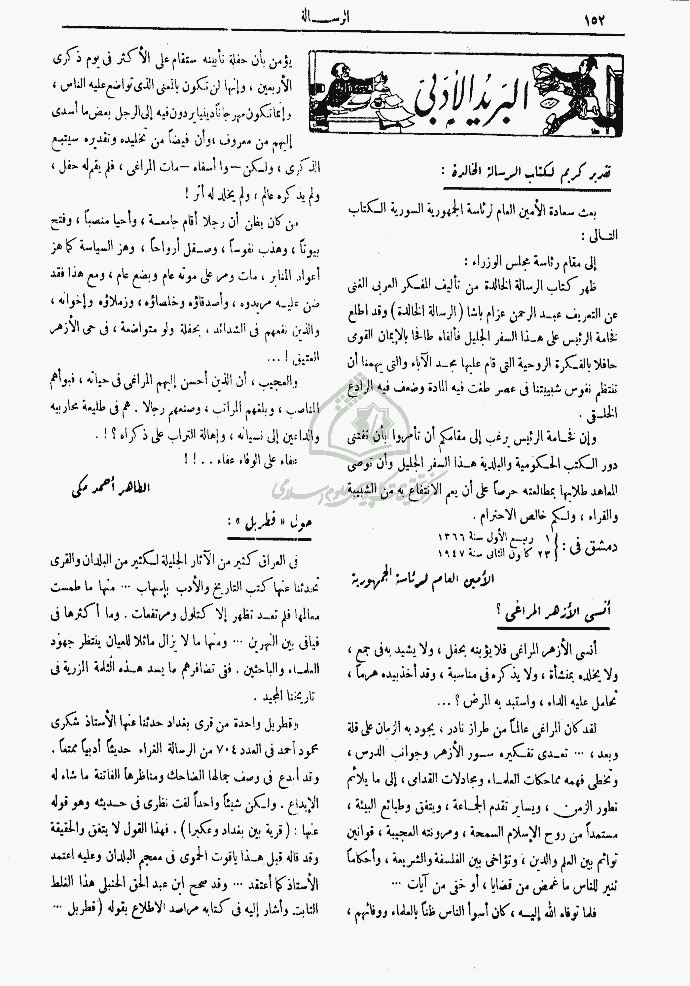 ١٥٢
الرسالة
البريد الأدبي
تقدير كريم لكتاب الرسالة الخالدة :
بعث سعادة الأمين العام لرئاسة الجمهورية السورية الكتاب
التالى :
إلى مقام رئاسة مجلس الوزراء :
ظهر كتاب الرسالة الخالدة من تأليف المفكر العربى الغنى
عن التعريف عبد الرحمن عزام باشا ( الرسالة الخالدة ) وقد اطلع
فخامة الرئيس على هذا السفر الجليل فألفاه طافحا بالإيمان القومى
حافلا بالفكرة الروحية التى قام عليها مجد الآباء والتى يهمنا أن
تنتظم نفوس شبيبتنا فى عصر طغت فيه المادة وضعف فيه الرادع
الخلقى .
وإن فخامة الرئيس يرغب إلى مقامكم أن تأمروا بأن تقتنى
دور الكتب الحكومية والبلدية هذا السفر الجليل وأن توصى
المعاهد طلابها بمطالعته حرصاً على أن يعم الانتفاع به من الشبيبة
والقراء ، ولكم خالص الاحترام .
دمشق فى : { ١ ربيع الأول سنة ١٣٦٦
٢٣ كانون الثانى سنة ١٩٤٧
الأمين العام لرئاسة الجمهورية
أنسى الأزهر المراغى ؟
أنسى الأزهر المراغى فلا يؤبنه بحفل ، ولا يشيد به فى جمع ،
ولا يخلده بمنشأة ، ولا يذكره فى مناسبة ، وقد أخذ بيده هرماً ،
تحامل عليه الداء ، واستبد به المرض ؟ ...
لقد كان المراغى عالماً من طراز نادر ، يجود به الزمان على قلة
وبعد ، ... تعدى تفكيره سور الأزهر وجوانب الدرس ،
وتخطى فهمه مماحكات العلماء ومجادلات القدامى ، إلى ما يلائم
تطور الزمن ، ويساير تقدم الجماعة ، ويتفق وطبائع البيئة ،
مستمداً من روح الإسلام السمحة ، ومرونته العجيبة ، قوانين
توائم بين العلم والدين ، وتؤاخى بين الفلسفة والشريعة ، وأحكاماً
تنير للناس ما غمض من قضايا ، أو خفى من آيات ...
فلما توفاه الله إليه ، كان أسوأ الناس ظناً بالعلماء ووفائهم ،
يؤمن بأن حفلة تأبينه ستقام على الأكثر فى يوم ذكرى
الأربعين ، وإنها لن تكون بالمعنى الذى تواضع عليه الناس ،
وإنما تكون مهرجاناً دينيا يردون فيه إلى الرجل بعض ما أسدى
إليهم من معروف ، وأن فيضاً من تخليده وتقديره سيتبع
الذكرى ، ولكن — وا أسفاه — مات المراغى ، فلم يقم له حفل ،
ولم يذكره عالم ، ولم يخلد له أثر !
من كان يظن أن رجلا أقام جامعة ، وأحيا منصباً ، وفتح
بيوتاً ، وهذب نفوساً ، وصقل أرواحاً ، وهز السياسة كما هز
أعواد المنابر ، مات ومر على موته عام وبضع عام ، ومع هذا فقد
ضن عليه مريدوه ، وأصدقاؤه وخلصاؤه ، وزملاؤه وإخوانه ،
والذين نفعهم فى الشدائد ، بحفلة ولو متواضعة ، فى حى الأزهر
العتيق ! ...
والعجيب ، أن الذين أحسن إليهم المراغى فى حياته ، فبوأهم
المناصب ، وبلغهم المراتب ، وصنعهم رجالا . هم فى طليعة محاربيه
والداعين إلى نسيانه ، وإهالة التراب على ذكراه ؟ ! .
عفاء على الوفاء عفاء . . ! !
الطاهر أحمد مكى
حول « قطربل » :
فى العراق كثير من الآثار الجليلة لكثير من البلدان والقرى
تحدثنا عنها كتب التاريخ والأدب بإسهاب ... منها ما طمست
معالمها فلم تعد تظهر إلا كتلول ومرتفعات . وما أكثرها فى
فيافى بين النهرين ... ومنها ما لا يزال ماثلا للعيان ينتظر جهود
العلماء والباحثين . ففى تضافرهم ما يسد هذه الثلمة المزرية فى
تاريخنا المجيد .
وقطربل واحدة من قرى بغداد حدثنا عنها الأستاذ شكرى
محمود أحمد فى العدد ٧٠٤ من الرسالة الغراء حديثاً أدبياً ممتعاً .
وقد أبدع فى وصف جمالها الضاحك ومناظرها الفاتنة ما شاء له
الإبداع . ولكن شيئاً واحداً لفت نظرى فى حديثه وهو قوله
عنها : ( قرية بين بغداد وعكبرا ) . فهذا القول لا يتفق والحقيقة
وقد قاله قبل هذا ياقوت الحموى فى معجم البلدان وعليه اعتمد
الأستاذ كما أعتقد ... وقد صحح ابن عبد الحق الحنبلى هذا الغلط
الثابت وأشار إليه فى كتابه مراصد الاطلاع بقوله ( قطربل ...